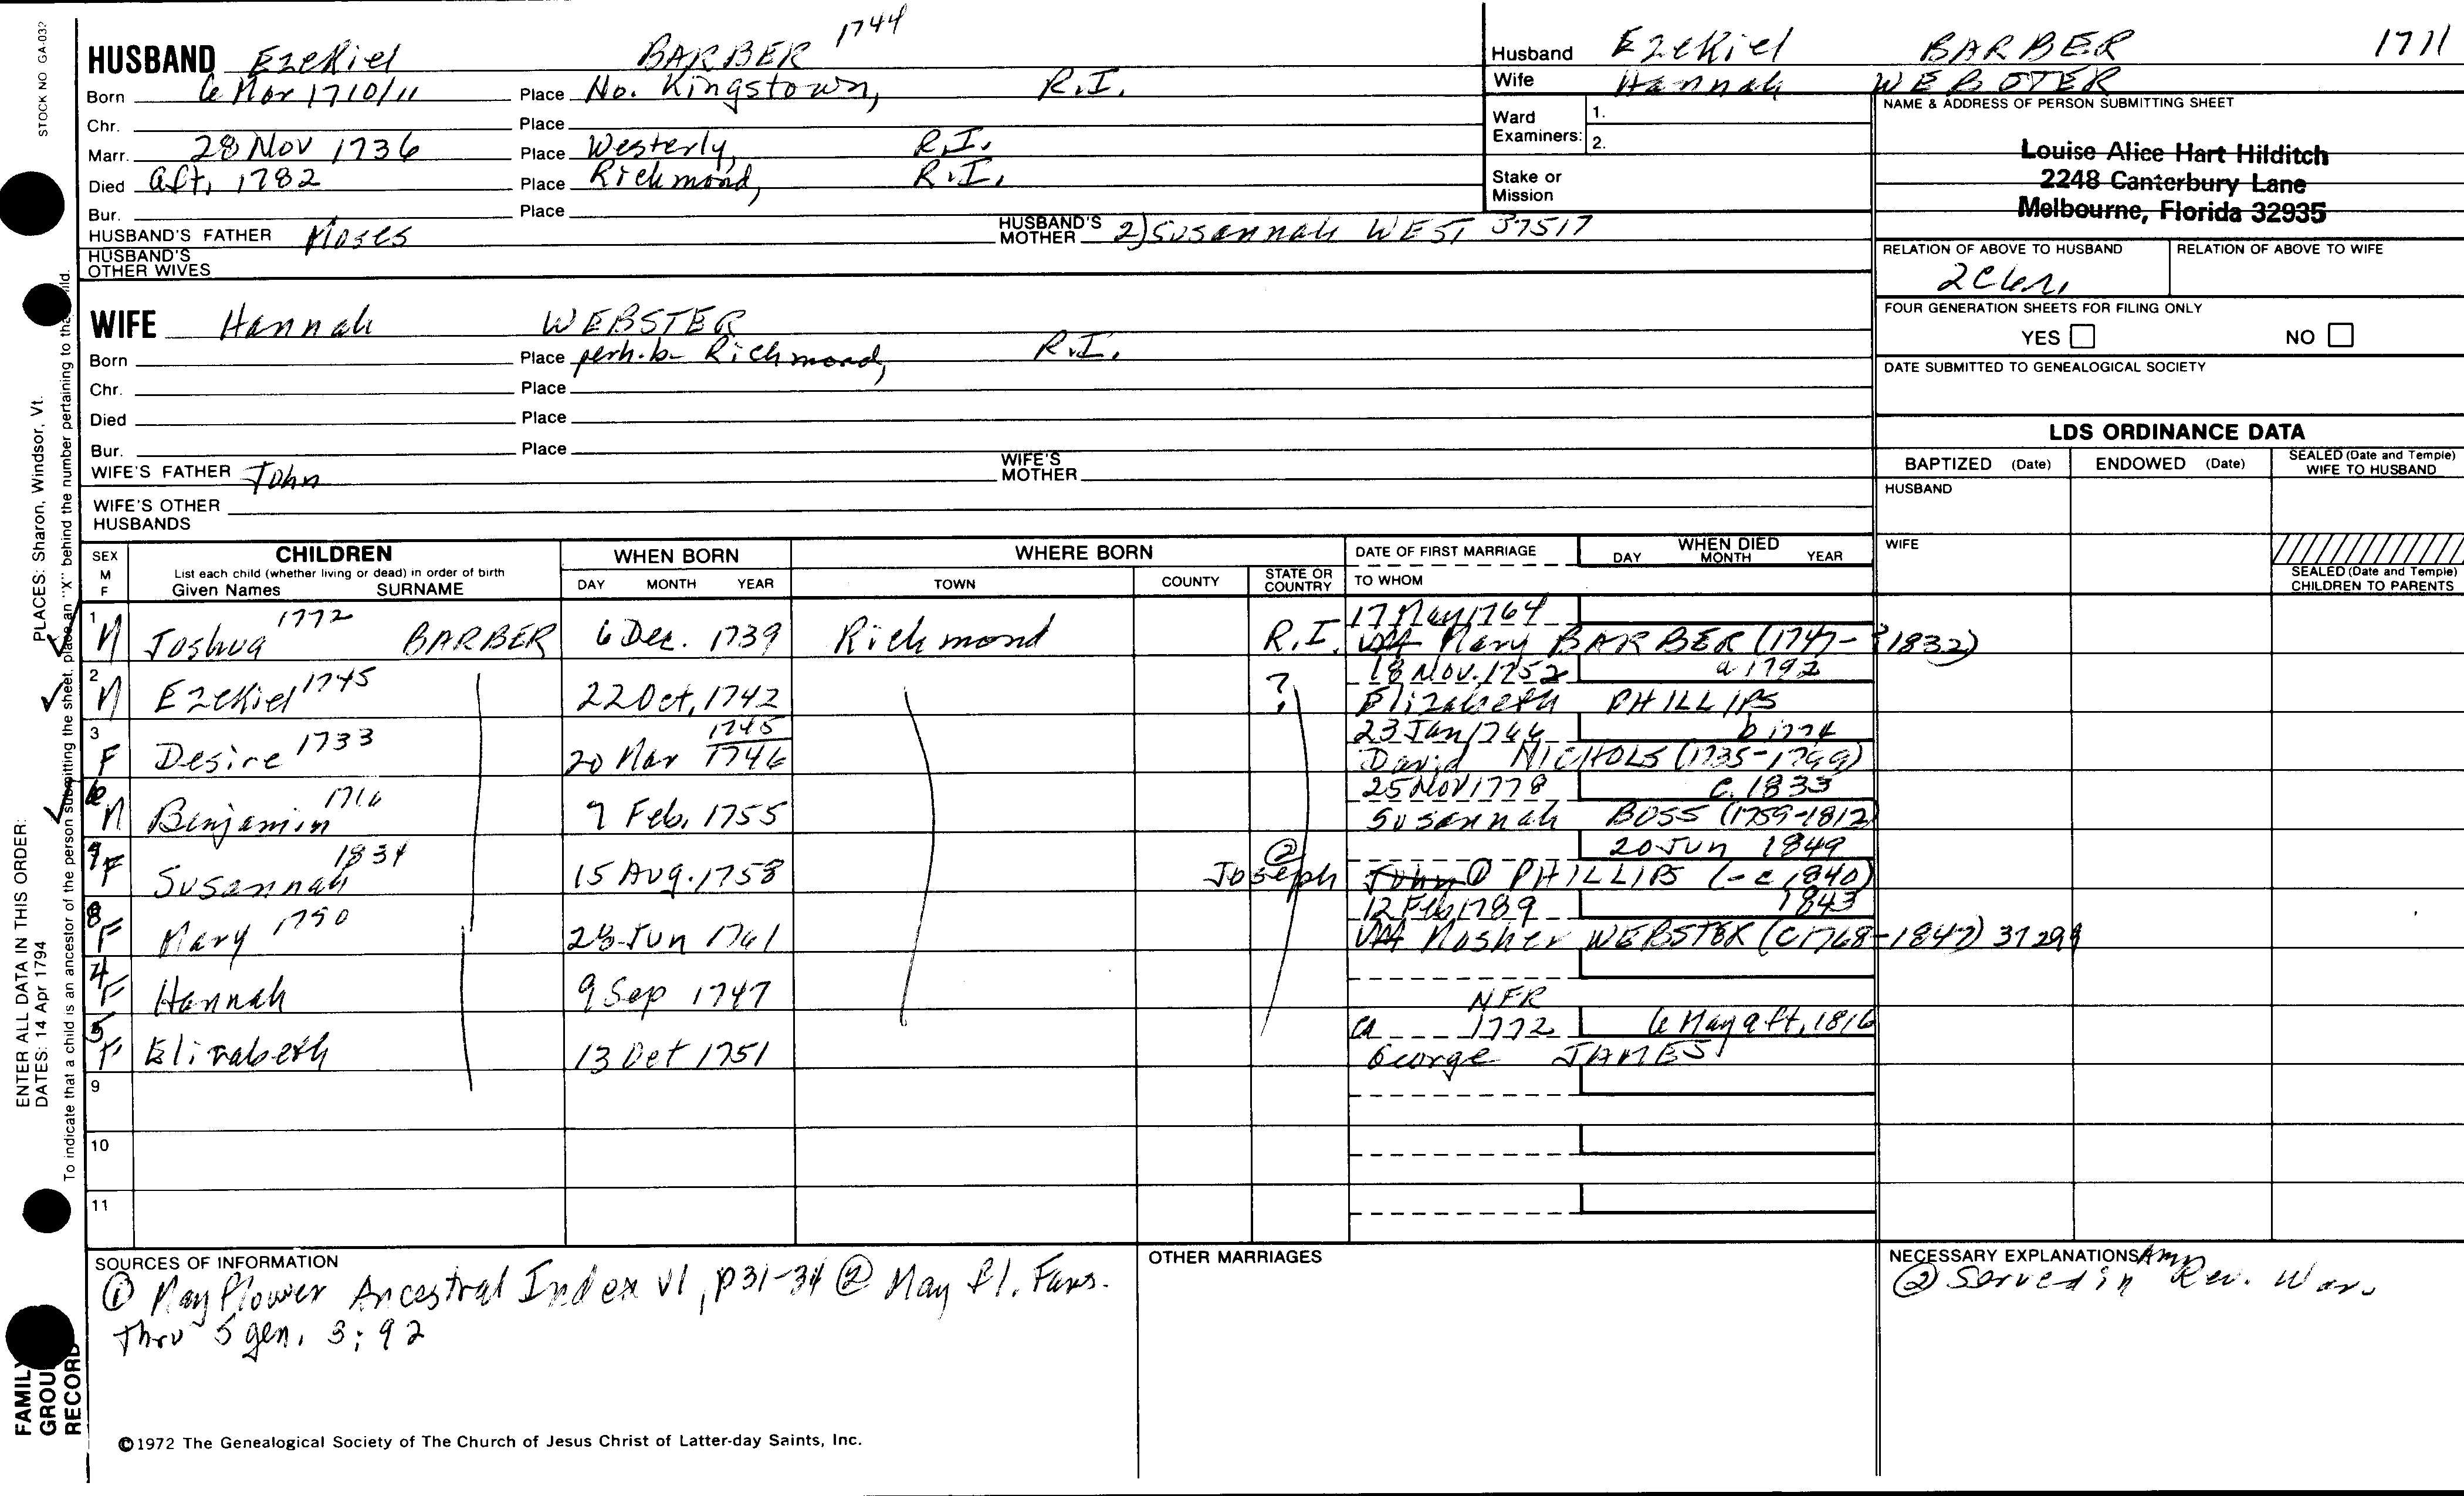 STOCK NO GA-032
PLACES: Sharon, Windsor, Vt.
ENTER ALL DATA IN THIS ORDER:
DATES: 14 Apr 1794
To indicate that a child is an ancestor of the person submitting the sheet, place an "X" behind the number pertaining to that child.
FAMILY
GROUP
RECORD
HUSBAND Ezekiel BARBER 1744
Born 6 Mar 1710/11 Place No. Kingstown, R.I.
Chr. Place
Marr. 28 Nov 1736 Place Westerly, R.I.
Died aft, 1782 Place Richmond, R.I.
Bur. Place
HUSBAND'S FATHER Moses HUSBAND'S MOTHER 2) Susannah WEST 37517
HUSBAND'S OTHER WIVES
WIFE Hannah WEBSTER
Born Place perh. b- Richmond, R.I.
Chr. Place
Died Place
Bur. Place
WIFE'S FATHER John WIFE'S MOTHER
WIFE'S OTHER HUSBANDS
Husband Ezekiel BARBER 1711
Wife Hannah WEBSTER
Ward Examiners: 1.
2.
Stake or Mission
NAME & ADDRESS OF PERSON SUBMITTING SHEET
Louise Alice Hart Hilditch
2248 Canterbury Lane
Melbourne, Florida 32935
RELATION OF ABOVE TO HUSBAND RELATION OF ABOVE TO WIFE
FOUR GENERATION SHEETS FOR FILING ONLY
YES NO
DATE SUBMITTED TO GENEALOGICAL SOCIETY
LDS ORDINANCE DATA
BAPTIZED (Date) ENDOWED (Date) SEALED (Date and Temple) WIFE TO HUSBAND
HUSBAND
WIFE
SEALED (Date and Temple) CHILDREN TO PARENTS
SEX M F CHILDREN WHEN BORN WHERE BORN DATE OF FIRST MARRIAGE WHEN DIED
List each child (whether living or dead) in order of birth DAY MONTH YEAR
Given Names SURNAME DAY MONTH YEAR TOWN COUNTY STATE OR COUNTRY TO WHOM
1 M Joshua 1772 BARBER 6 Dec. 1739 Richmond R.I. 17 May 1764
Mary BARBER (1747-?1832)
2 M Ezekiel 1745 22 Oct, 1742 ? 18 Nov. 1752 a 1792
Elizabeth PHILLIPS
3 F Desire 1733 20 Mar 1745/1746 23 Jan 1766 b 1774
David NICHOLS (1735-1799)
6 M Benjamin 1716 7 Feb, 1755 25 Nov 1778 c. 1833
Susannah BOSS (1759-1812)
7 F Susannah 1834 15 Aug. 1758 20 Jun 1849
② Joseph John ① PHILLIPS (-c 1840)
8 F Mary 1750 28 Jun 1761 12 Feb 1789 1843
Mosher WEBSTER (C1768-1847)
4 F Hannah 9 Sep 1747
NFR
5 F Elizabeth 13 Oct 1751 ca 1772 6 May aft, 1816
George JAMES
9
10
11
SOURCES OF INFORMATION
① Mayflower Ancestral Index v1, p31-34 ② May fl. Fams.
thru 5 gen. 3:92
OTHER MARRIAGES
NECESSARY EXPLANATIONS
② Served in Amn Rev. War.
©1972 The Genealogical Society of The Church of Jesus Christ of Latter-day Saints, Inc.